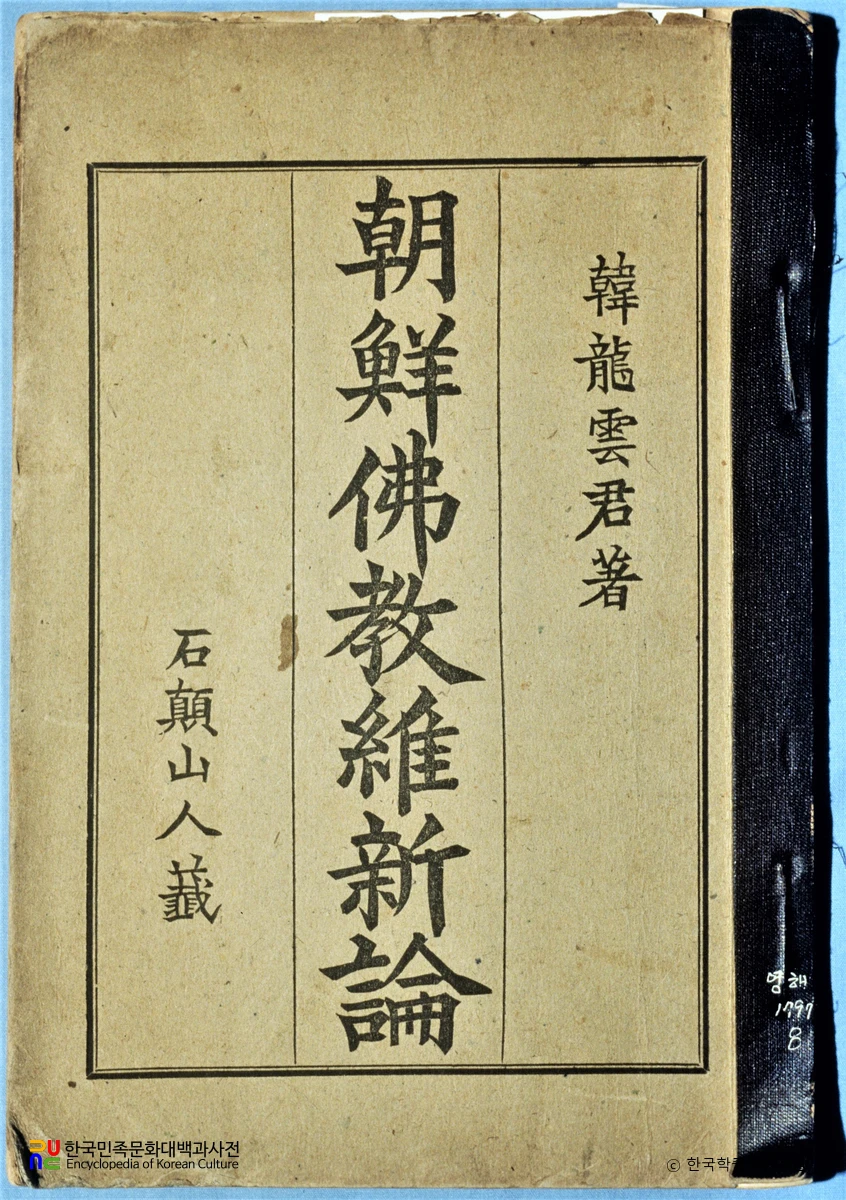 韓龍雲君著
朝鮮佛教維新論
石顚山人籤
영해
1797
8
한국민족문화대백과사전
Encyclopedia of Korean Culture
© 한국학